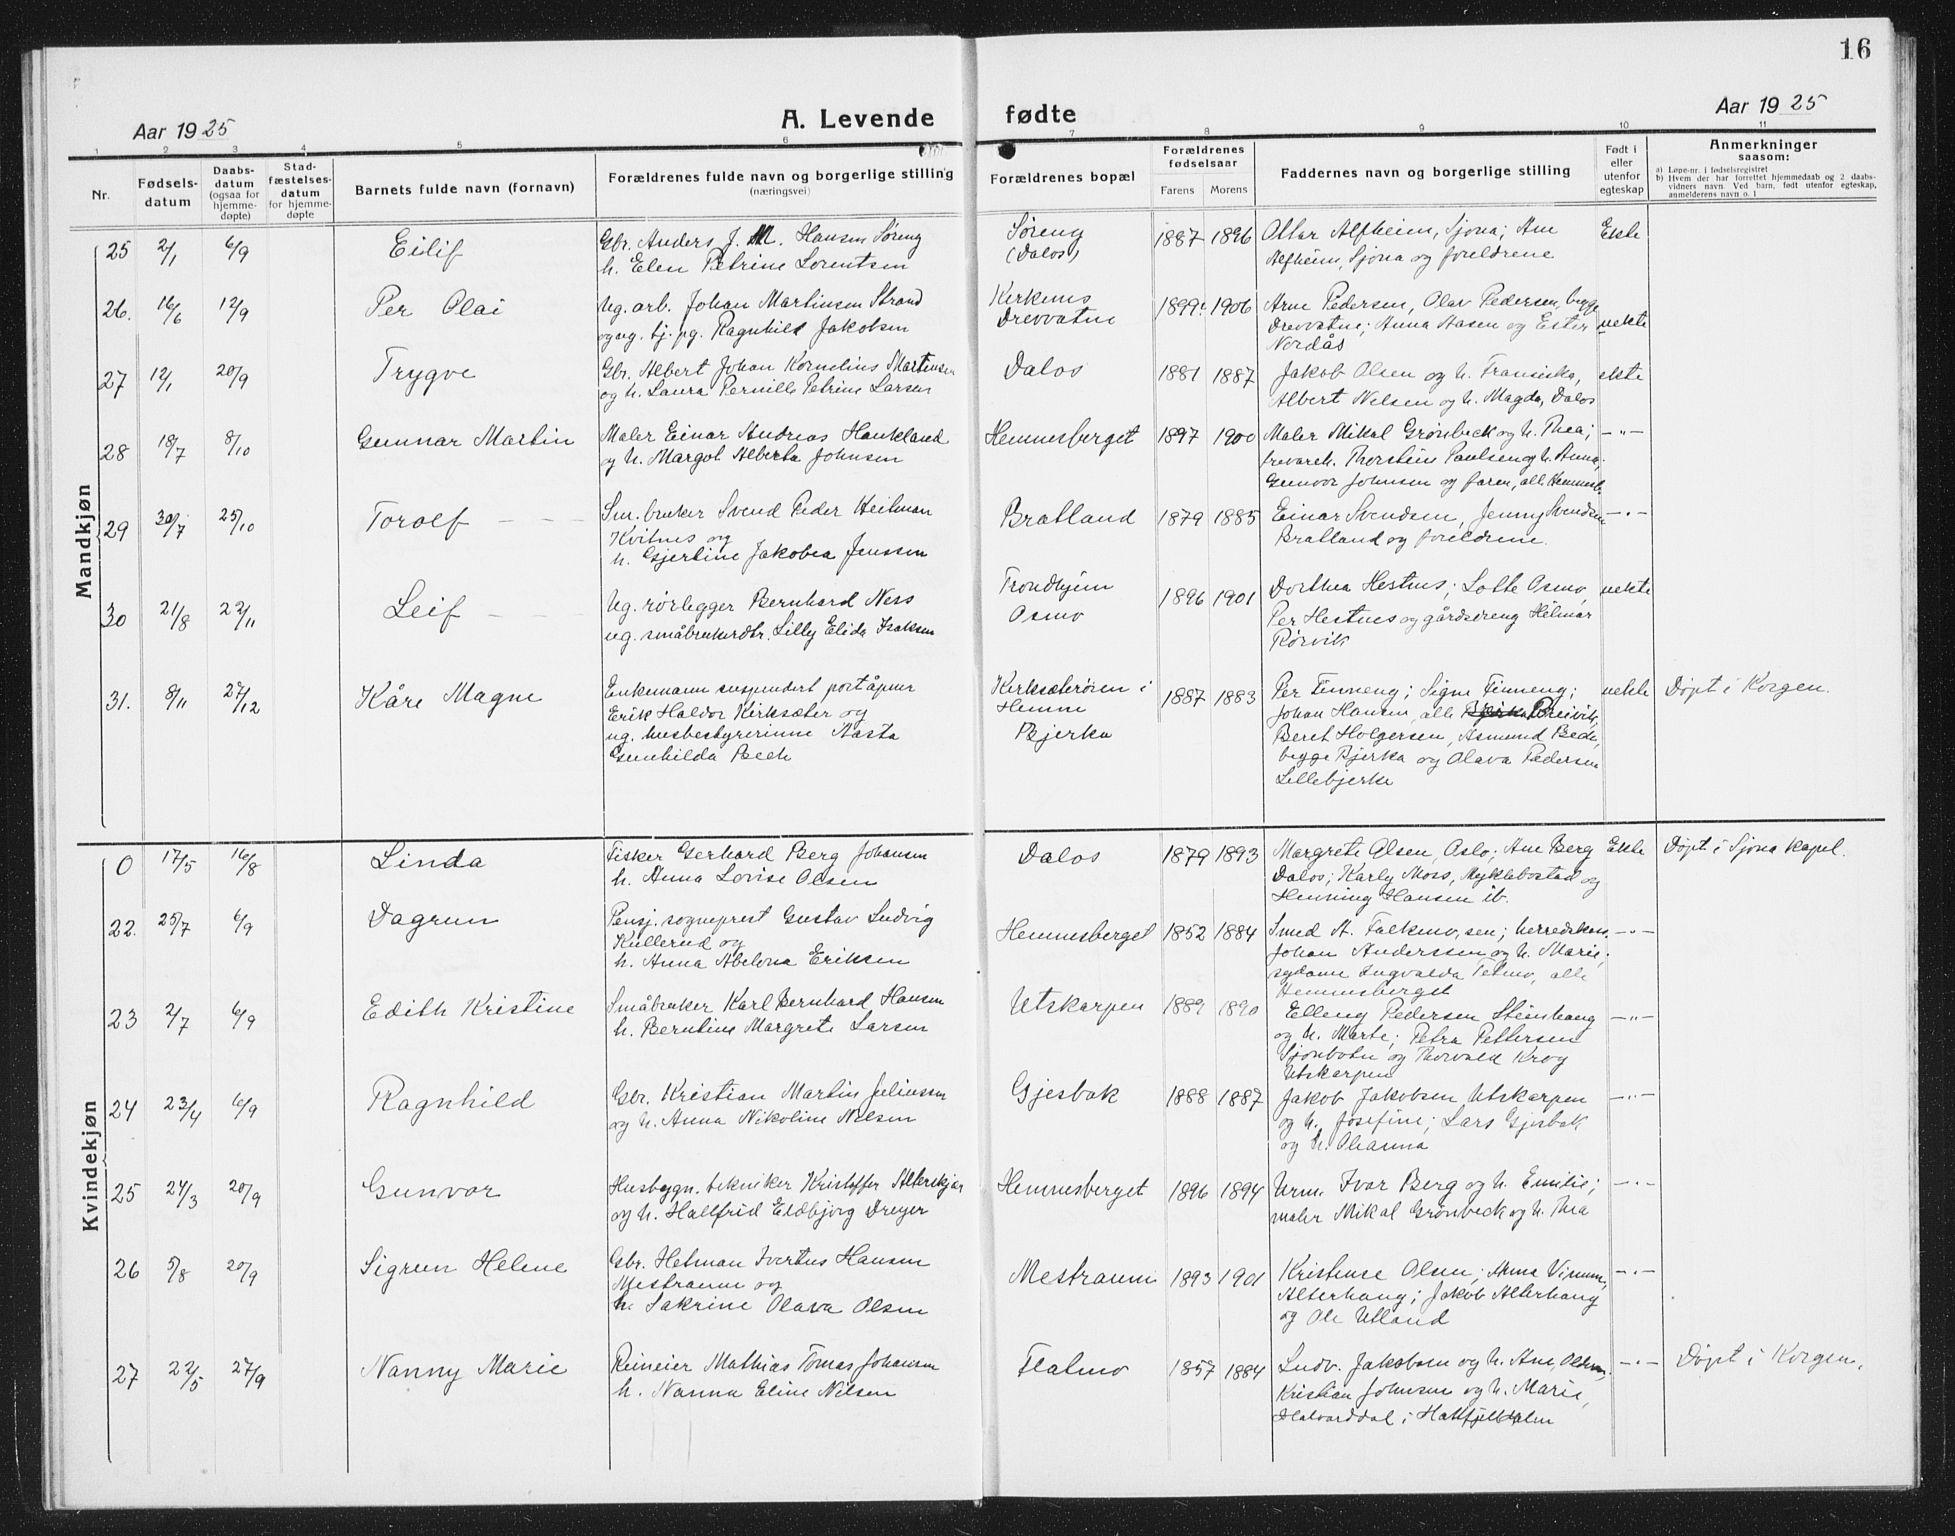 16
Aar 1925
A. Levende fødte
Aar 1925
1 2 3 4 5 6 7 8 9 10 11
Nr.
Fødsels-
datum
Daabs-
datum
(ogsaa for
hjemme-
døpte)
Stad-
fæstelses-
datum
for hjemme-
døpte
Barnets fulde navn (fornavn)
Forældrenes fulde navn og borgerlige stilling
(næringsvei)
Forældrenes bopæl
Forældrenes
fødselsaar
Farens Morens
Faddernes navn og borgerlige stilling
Født i
eller
utenfor
egteskap
Anmerkninger
saasom:
a) Løpe-nr. i fødselsregistret
b) Hvem der har forrettet hjemmedaab og 2 daabs-
vidners navn. Ved barn, født utenfor egteskap,
anmelderens navn o. l
Mandkjøn
25 2/1 6/9 Eilif
Gbr. Anders J. M. Hansen Søreng
h. Elen Petrine Lorentsen
Søreng
(Dalos)
1887 1896
Ottar Alfheim, Sjona; Ane
Alfheim, Sjona og foreldrene
Ekte
26. 16/6 12/9 Per Olai
Ug. arb. Johan Martinsen Strand
og ug. tj. pg. Ragnhild Jakobsen
Kirkenes
Drevvatne
1899 1906
Arne Pedersen, Olav Pedersen, begge
Drevvatne; Anna Aasen og Ester
Nordås
uekte
27 12/1 20/9 Trygve
Gbr. Albert Johan Kornelius Martinsen
og h. Laura Pernille Petrine Larsen
Dalos
1881 1887
Jakob Olsen og h. Fransiska,
Albert Nelsen og h. Magda, Dalos
ekte
28 18/7 8/10 Gunnar Martin
Maler Einar Andreas Haukland
og h. Margot Alberta Johnsen
Hemnesberget
1897 1900
Maler Mikal Grønbeck og h. Thea;
trevareh. Thorstein Paulsen og h. Anna;
Gunvor Johnsen og faren, alle Hemnesb.
—"—
29 30/7 25/10 Toralf — —
Sm. bruker Svend Peder Heitman
Kvitnes og
h. Gjertine Jakobea Jenssen
Bratland
1879 1885
Einar Svendsen, Jenny Svendsen
Bratland og foreldrene.
—"—
30 21/8 22/11 Leif — —
Ug. rørlegger Bernhard Ness
ug. småbrukerdtr. Lilly Elida Isaksen
Trondhjem
Osmo
1896 1901
Dorthea Hestnes; Lotte Osmo,
Per Hestnes og gårdsdreng Hilmar
Rørvik
uekte
31. 8/11 27/12 Kåre Magne
Enkemann suspendert poståpner
Erik Haldor Kirksæter og
ug. husbestyrerinne Aasta
Gunhilda Bech
Kirksæterøren i
Hemne
Bjerka
1887 1883
Per Finneng; Signe Finneng;
Johan Hansen, alle Breivik,
Beret Holgersen, Asmund Bech,
begge Bjerka og Olava Pedersen
Lillebjerke
uekte
Døpt i Korgen.
Kvindekjøn
0 17/5 16/8 Linda
Fisker Gerhard Berg Johansen
h. Anna Lovise Olsen
Dalos
1879 1893
Margrete Olsen, Oslo; Ane Berg
Dalos; Karly Moss, Myklebostad og
Henning Hansen ib.
Ekte
Døpt i Sjona kapel.
22. 25/7 6/9 Dagrun
Pensj. sogneprest Gustav Ludvig
Kullerud og
h. Anna Abelona Eriksen
Hemnesberget
1852 1884
Smed A. Falkmo, sen; herredskas.
Johan Anderssen og h. Marie;
sydame Ingvalda Telmo, alle
Hemnesberget
—"—
23 2/7 6/9 Edith Kristine
Småbruker Karl Bernhard Hansen
h. Berntine Margrete Larsen
Utskarpen
1889 1890
Elleng Pedersen Steinhaug
og h. Marte; Petra Pettersen
Sjonbotn og Thorvald Krog
Utskarpen
—"—
24 23/4 6/9 Ragnhild
Gbr. Kristian Martin Juliussen
og h. Anna Nikoline Nilsen
Gjesbak
1888 1887
Jakob Jakobsen Utskarpen
og h. Josefine; Lars Gjesbak
og h. Oleanna
—"—
25 24/3 20/9 Gunvor
Husbygn. tekniker Kristoffer Alterskjær
og h. Hallfrid Eldbjørg Dreyer
Hemnesberget
1896 1894
Urm. Ivar Berg og h. Emilie;
maler Mikal Grønbeck og h. Thea
—"—
26 5/8 20/9 Sigrun Helene
Gbr. Helman Ivertus Hansen
Mestraunn og
h. Sakrine Olava Olsen
Mestraunn
1893 1901
Kristense Olsen; Anna Vinum,
Alterhaug; Jakob Alterhaug
og Ole Utland
—"—
27 22/5 27/9 Nanny Marie
Reineier Mathias Tomas Johansen
h. Nanna Eline Nilsen
Flatmo
1857 1884
Ludv. Jakobsen og h. Ane, Olsen,
Kristian Johnsen og h. Marie,
Halvarddal i Hattfjelldalen
—"—
Døpt i Korgen.